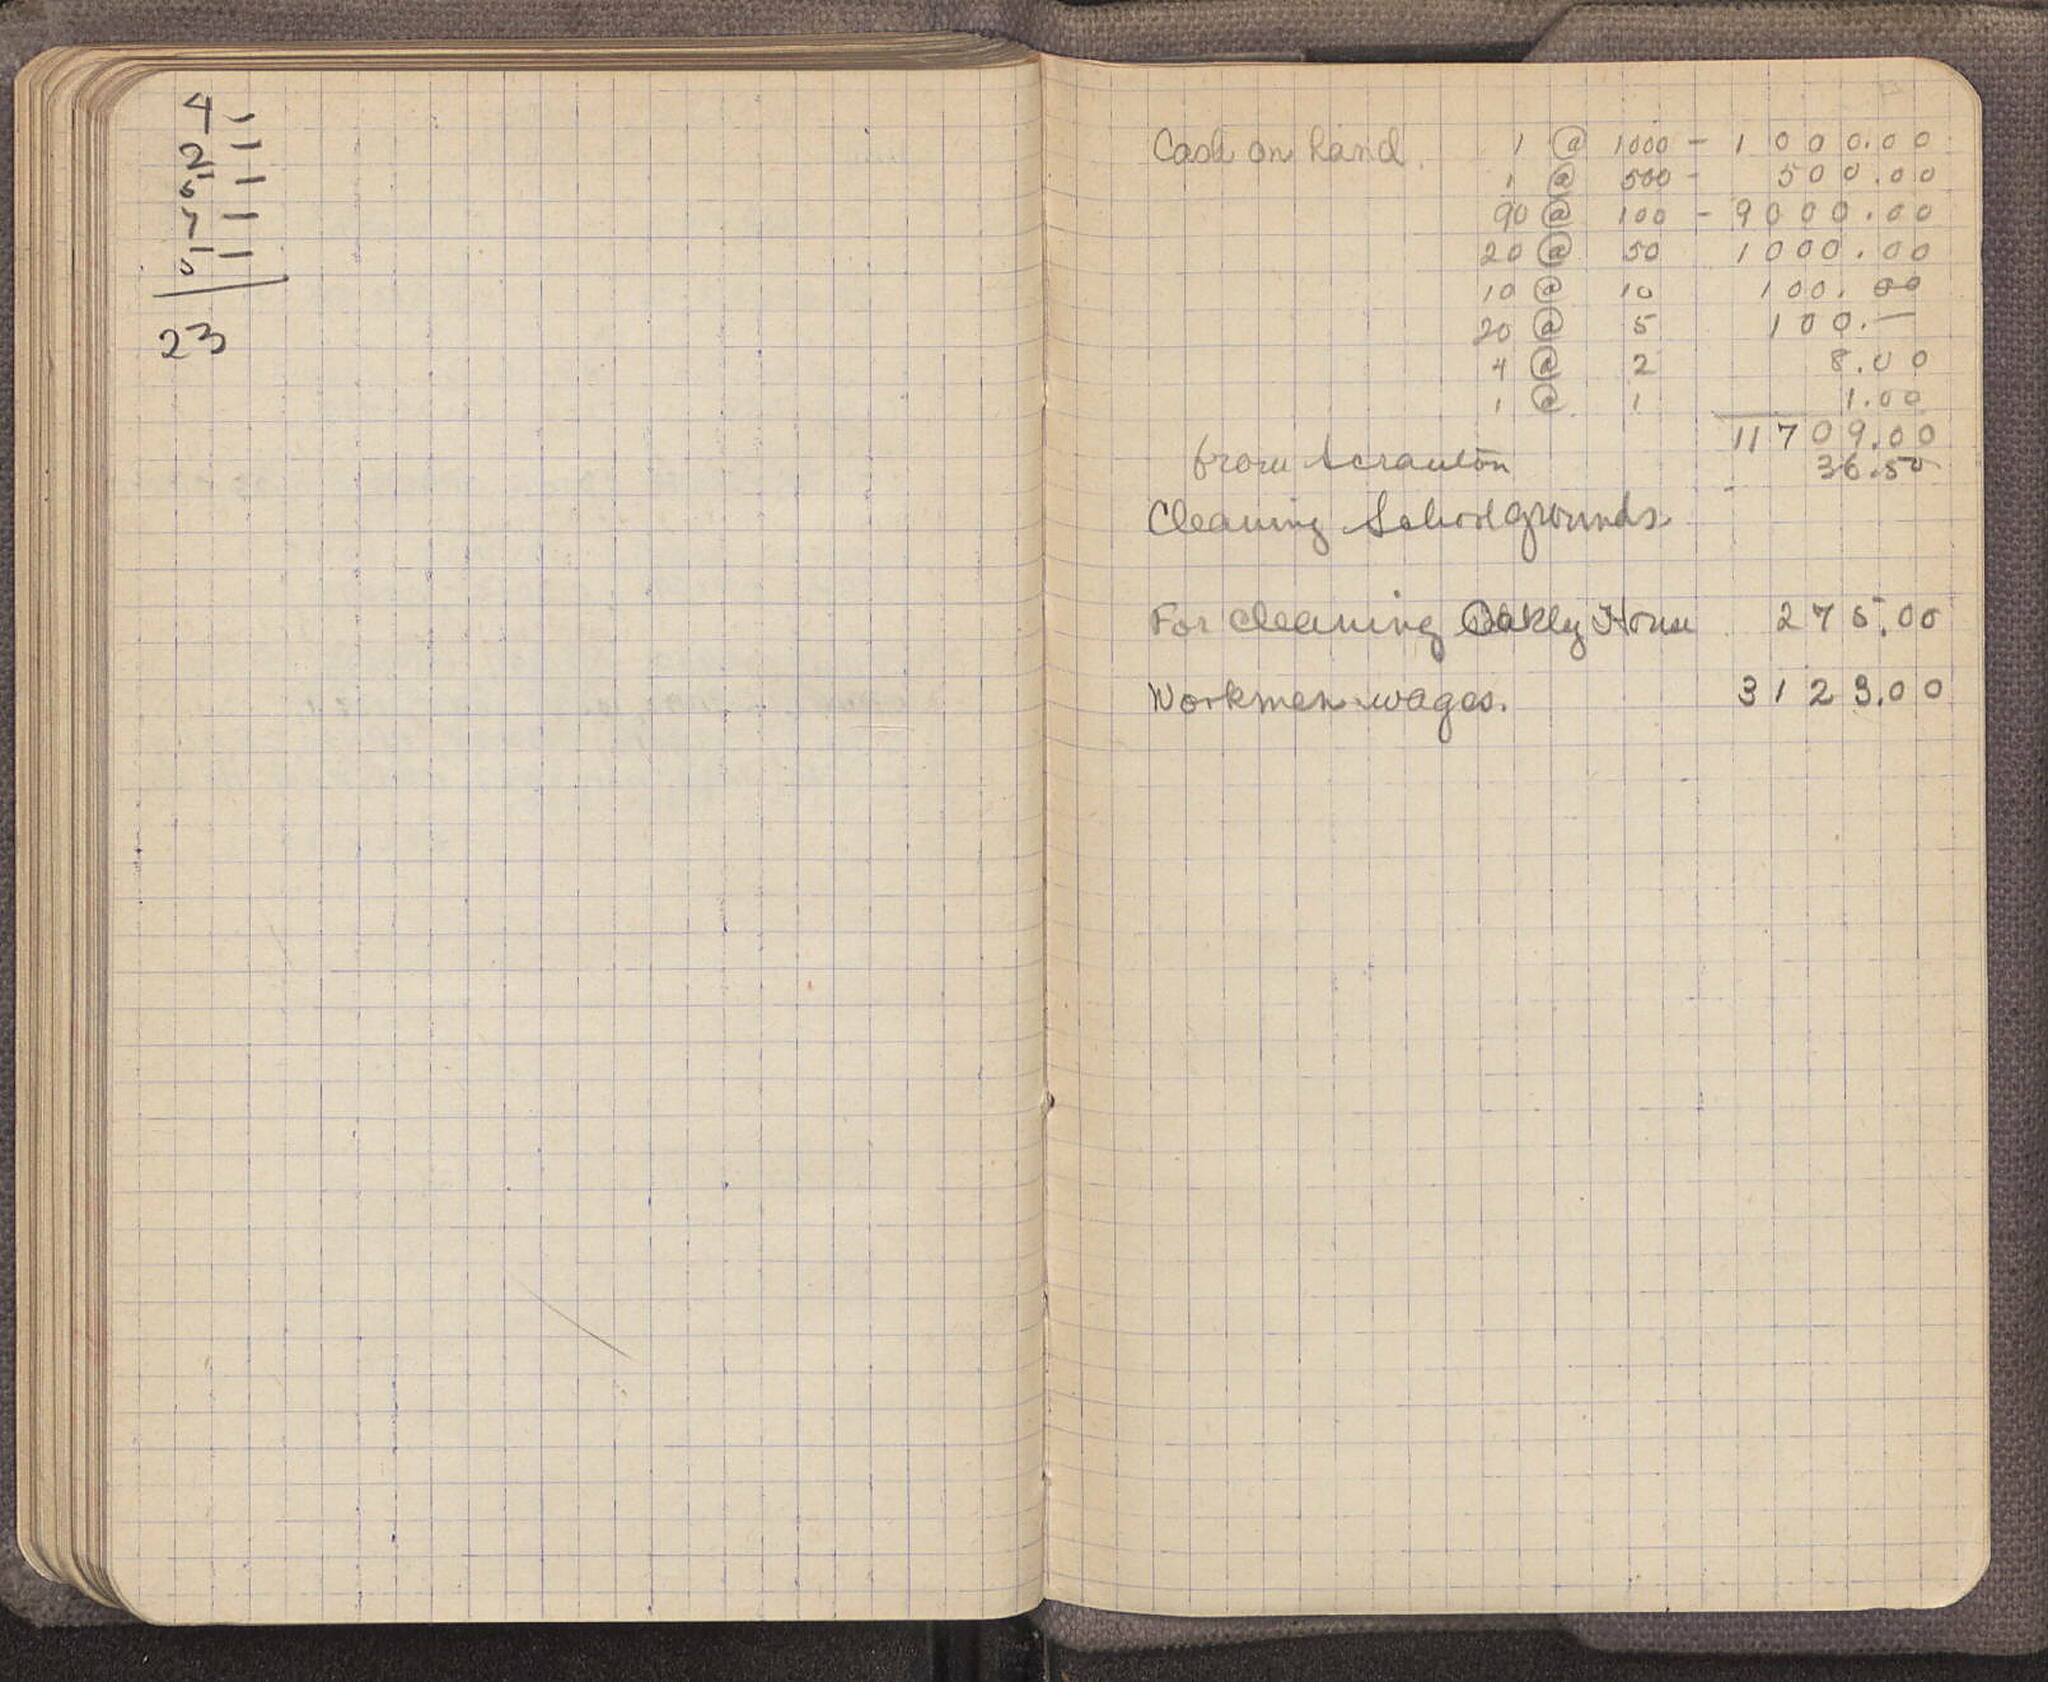 4 -
2 -
5 -
7 -
5 -
23
Cash on hand. 1 @ 1000 - 1000.00
1 @ 500 - 500.00
90 @ 100 - 9000.00
20 @ 50 1000.00
10 @ 10 100.00
20 @ 5 100.—
4 @ 2 8.00
1 @ 1 1.00
11709.00
from Scranton 36.50
Cleaning School grounds
For cleaning Oakly House 275.00
Workmen wages. 3123.00